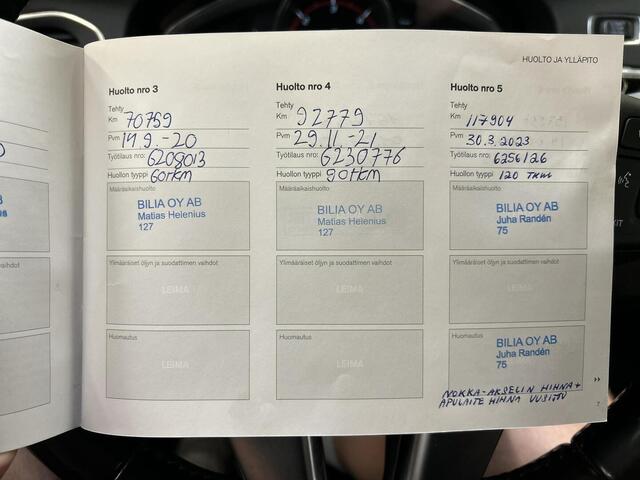 HUOLTO JA YLLÄPITO
Huolto nro 3
Tehty
Km 70759
Pvm 14.9.-20
Työtilaus nro: 6209013
Huollon tyyppi 60tkm
Määräaikaishuolto
BILIA OY AB
Matias Helenius
127
Ylimääräiset öljyn ja suodattimen vaihdot
LEIMA
Huomautus
LEIMA
Huolto nro 4
Tehty
Km 92779
Pvm 29.11.-21
Työtilaus nro: 6230776
Huollon tyyppi 90tkm
Määräaikaishuolto
BILIA OY AB
Matias Helenius
127
Ylimääräiset öljyn ja suodattimen vaihdot
LEIMA
Huomautus
LEIMA
Huolto nro 5
Tehty
Km 117904
Pvm 30.3.2023
Työtilaus nro: 6256126
Huollon tyyppi 120 TKM
Määräaikaishuolto
BILIA OY AB
Juha Randén
75
Ylimääräiset öljyn ja suodattimen vaihdot
LEIMA
Huomautus
BILIA OY AB
Juha Randén
75
NOKKA-AKSELIN HIHNA +
APULAITE HIHNA UUSITTU
7